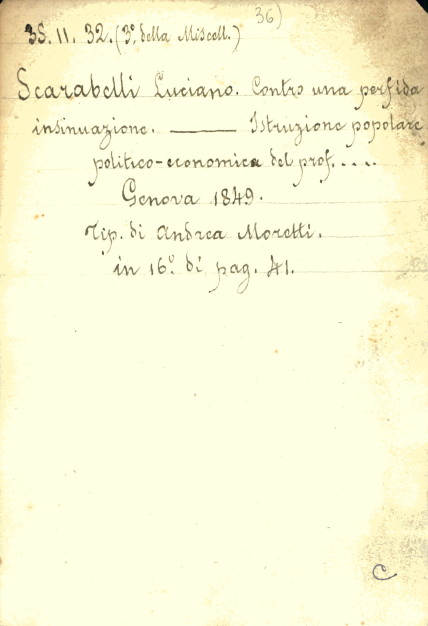 36)
35. 11. 32. (3º della Miscell.)
Scarabelli Luciano. Contro una perfida
insinuazione. ——— Istruzione popolare
politico-economica del prof. ....
Genova 1849.
Tip. di Andrea Moretti.
in 16º di pag. 41.
C